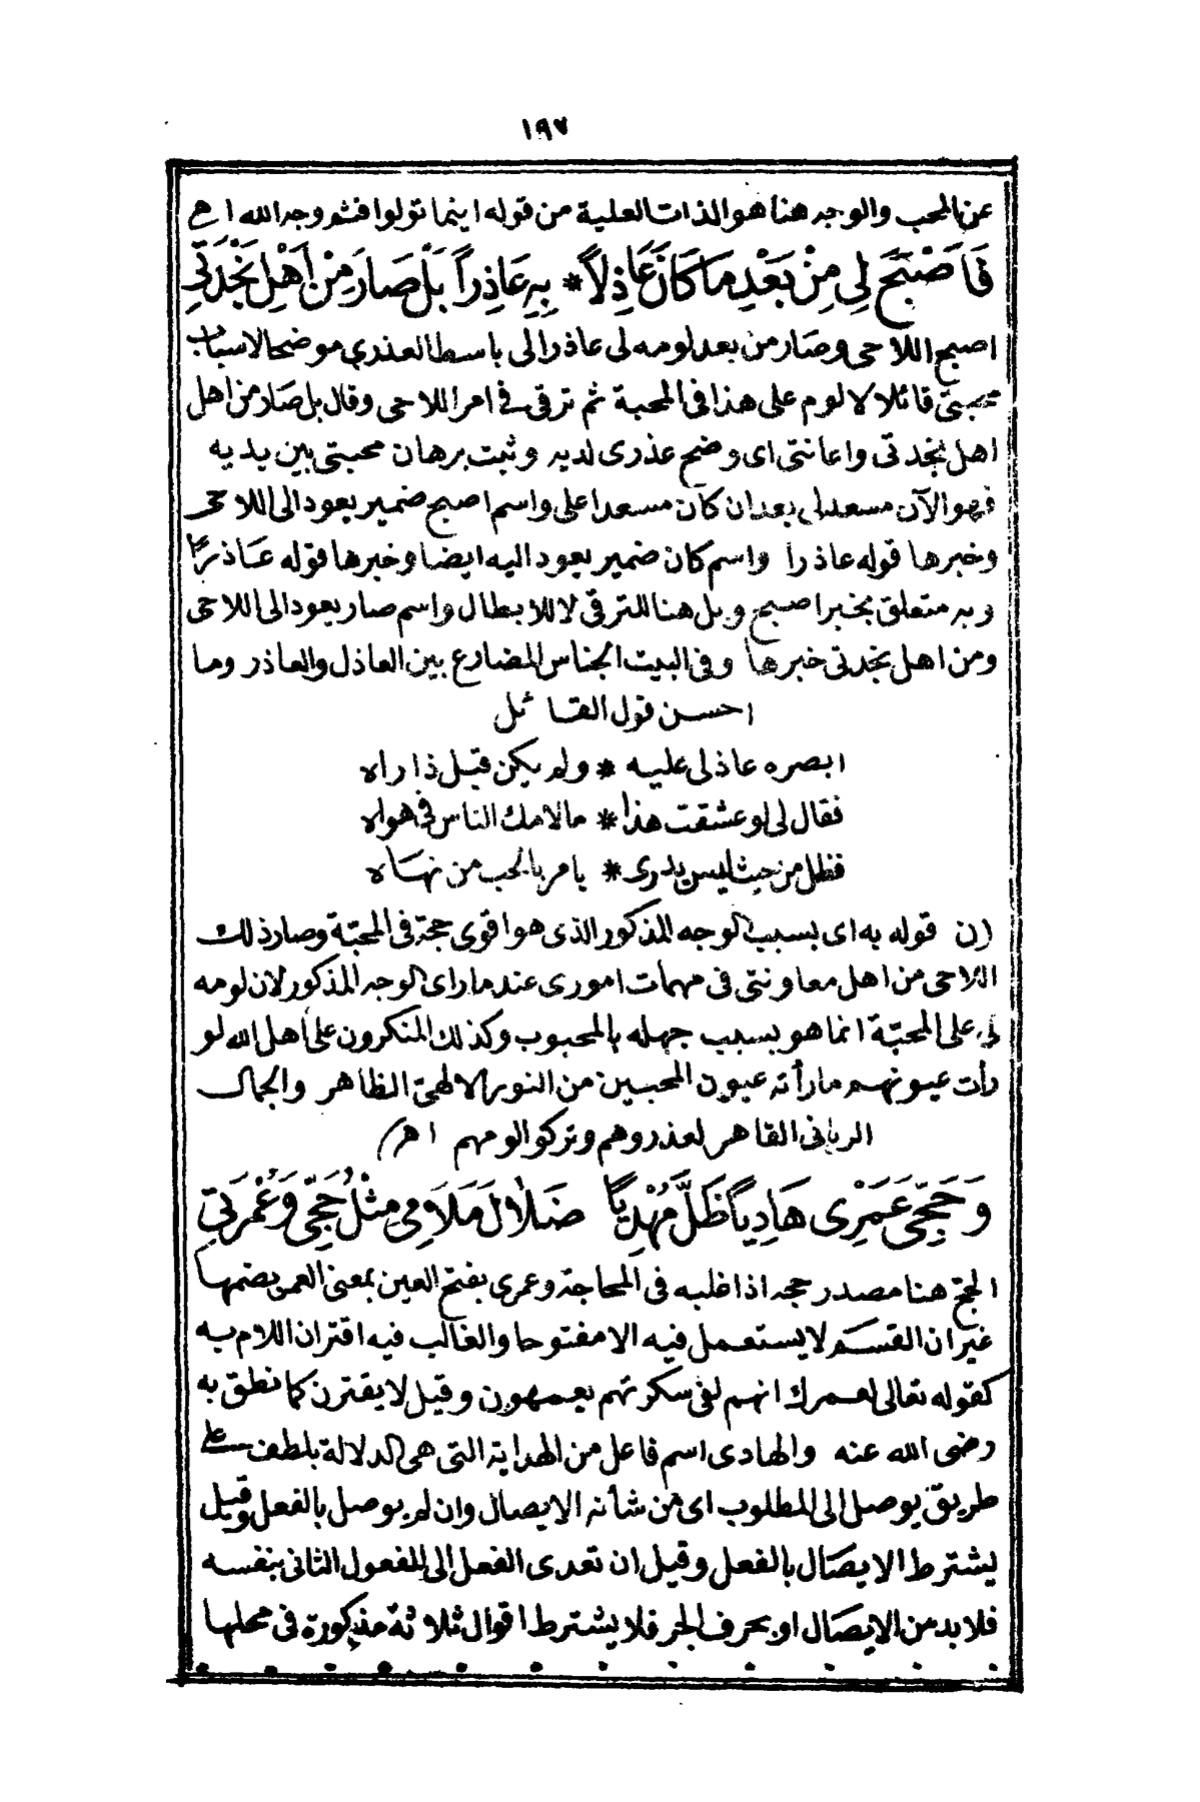 ١٩٧
عن المحب والوجه هنا هو الذات العلية من قوله اينما تولوا فثم وجه الله اهـ
فَاَصْبَحَ لِى مِنْ بَعْدِ مَا كَانَ عَاذِلاً * بِهِ عَاذِراً بَلْ صَارَ مِنْ اَهْلِ نَجْدَتِى
اصبح اللاحى وصار من بعد لومه لى عاذرا لى باسطا لعذرى موضحا لاسباب
محبتى قائلا لا لوم على هذا فى المحبة ثم ترقى فى امر اللاحى وقال بل صار من اهل
اهل نجدتى واعانتى اى وضح عذرى لديه وثبت برهان محبتى بين يديه
فهو الآن مسعد لى بعد ان كان مسعدا على واسم اصبح ضمير يعود الى اللاحى
وخبرها قوله عاذرا واسم كان ضمير يعود اليه ايضا وخبرها قوله عاذرًا
وبه متعلق بخبر اصبح وبل هنا للترقى لا للابطال واسم صار يعود الى اللاحى
ومن اهل نجدتى خبرها وفى البيت الجناس المضارع بين العاذل والعاذر وما
احسن قول القائل
ابصره عاذلى عليه * ولم يكن قبل ذا راه
فقال لى لو عشقت هذا * ما لامك الناس فى هواه
فظل من حيث ليس يدرى * يامر بالحب من نهاه
(ن قوله به اى بسبب الوجه المذكور الذى هو اقوى حجة فى المحبّة وصار ذلك
اللاحى من اهل معاونتى فى مهمات امورى عند ما راى الوجه المذكور لان لومه
لى على المحبّة انما هو بسبب جهله بالمحبوب وكذلك المنكرون على أهل الله لو
رأت عيونهم ما رأته عيون المحبين من النور الالهىّ الظاهر والجمال
الربانى القاهر لعذروهم وتركوا لومهم اهـ)
وَحَجِّىَ عَمْرِى هَادِياً ظَلَّ مُهْدِياً ضَلالَ مَلاَمِى مِثْلُ حَجِّى وَعُمْرَتِى
الحج هنا مصدر حجه اذا غلبه فى المحاجة وعمرى بفتح العين بمعنى العمر بضمها
غير ان القسم لا يستعمل فيه الا مفتوحا والغالب فيه اقتران اللام به
كقوله تعالى لعمرك انهم لفى سكرتهم يعمهون وقيل لا يقترن كما نطق به
رضى الله عنه والهادى اسم فاعل من الهداية التى هى الدلالة بلطف على
طريق يوصل الى المطلوب اى من شأنه الايصال وان لم يوصل بالفعل وقيل
يشترط الايصال بالفعل وقيل ان تعدى الفعل الى المفعول الثانى بنفسه
فلابد من الايصال او بحرف الجر فلا يشترط اقوال ثلاثة مذكورة فى محلها